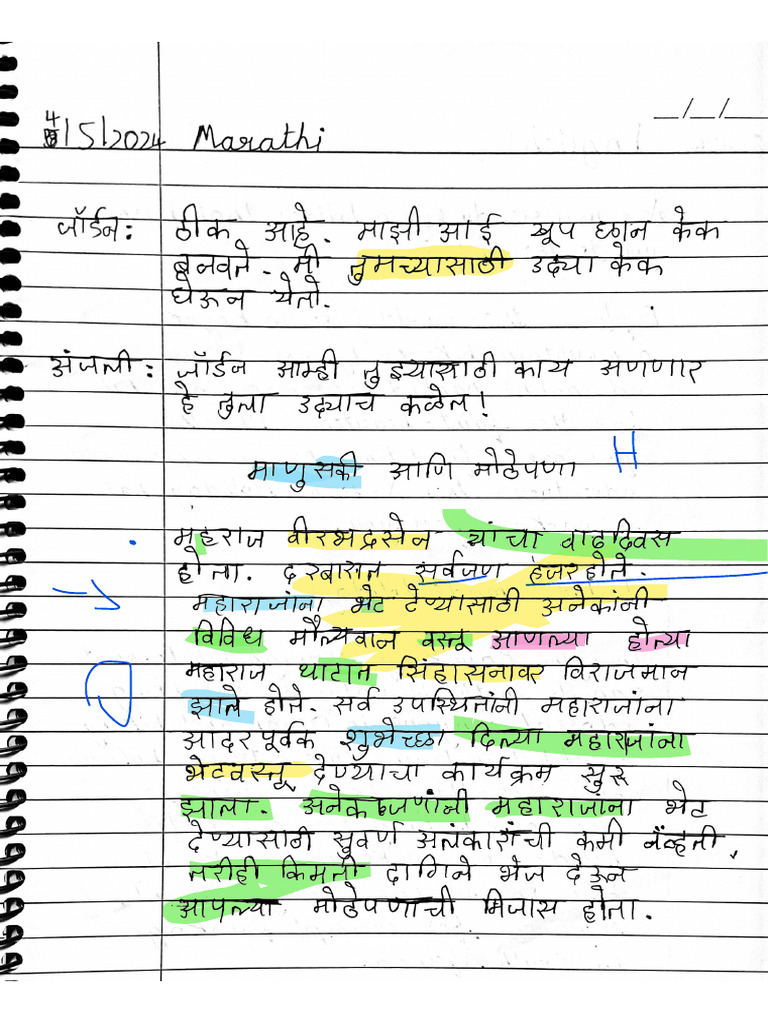 __/__/__
4/5/2024 Marathi
जॉर्डन: ठीक आहे. माझी आई खूप छान केक
बनवते. मी तुमच्यासाठी उद्या केक
घेऊन येतो.
अंजली: जॉर्डन आम्ही तुझ्यासाठी काय अणणार
हे तुला उद्याच कळेल!
माणुसकी आणि मोठेपणा H
महराज वीरभद्रसेन यांचा वाढदिवस
होता. दरबारात सर्वजण हजर होते.
महाराजांना भेट देण्यासाठी अनेकांनी
विविध मौल्यवान वस्तू आणल्या होत्या
महाराज थाटात सिंहासनावर विराजमान
झाले होते. सर्व उपस्थितांनी महाराजांना
आदरपूर्वक शुभेच्छा दिल्या महाराजांना
भेटवस्तू देण्याचा कार्यक्रम सुरू
झाला. अनेक जणांनी महाराजांना भेट
देण्यासाठी सुवर्ण अलंकारांची कमी नव्हती,
तरीही किमती दागिने भेज देऊन
आपल्या मोठेपणाची मिजास होता.